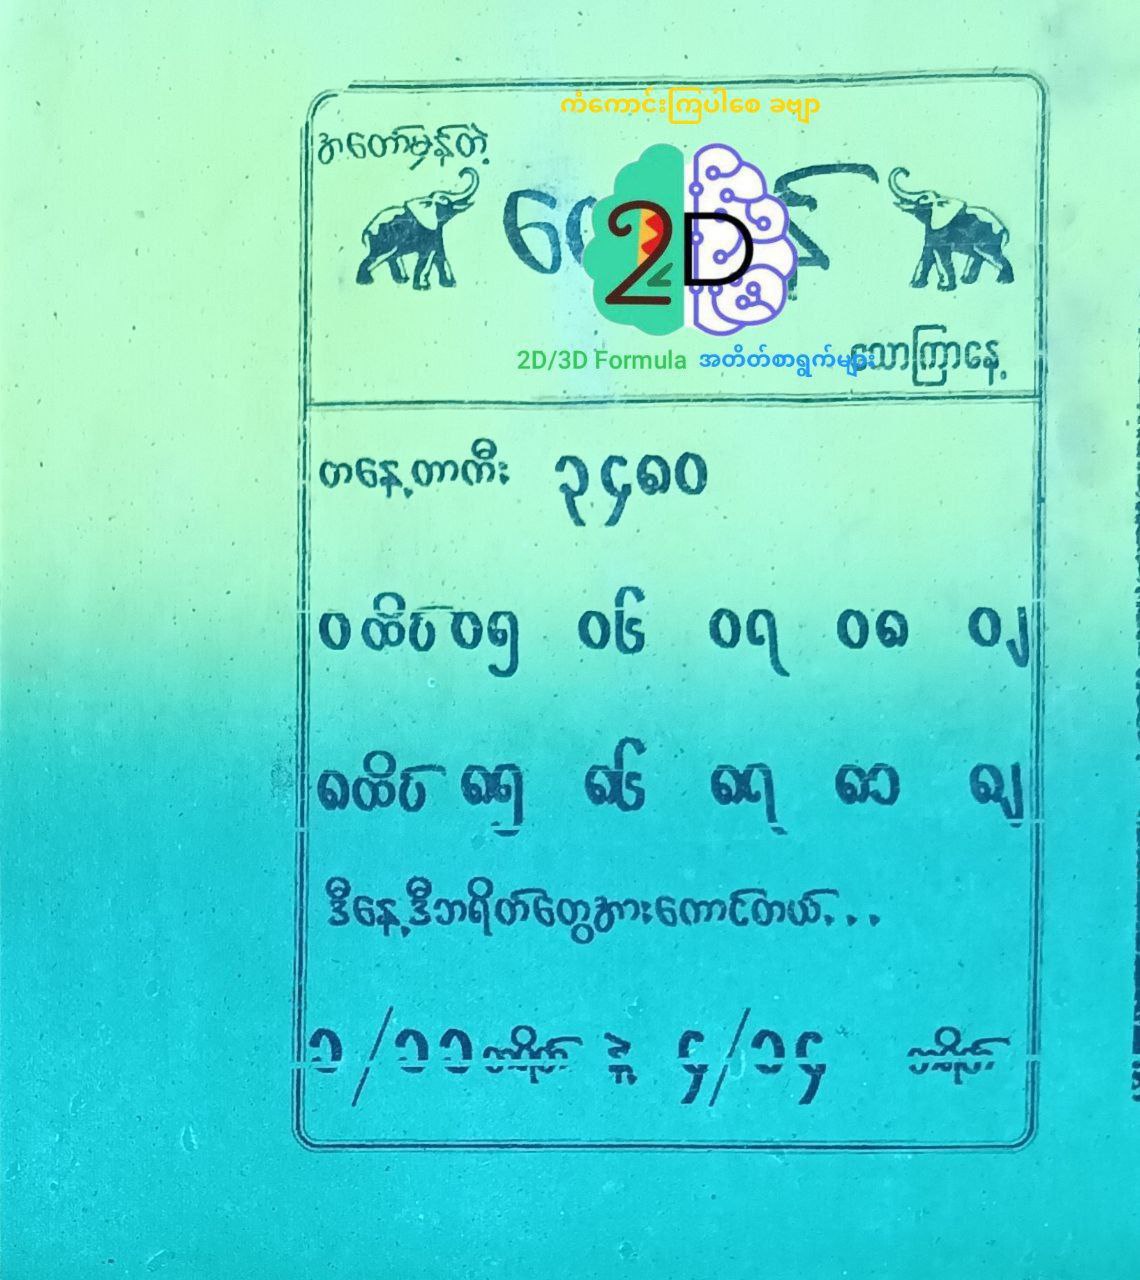 ကံကောင်းကြပါစေ ခဗျာ
အတော်မှန်တဲ့
2D
2D/3D Formula အတိတ်စာရွက်များ
သောကြာနေ့
တနေ့တာကီး ၃၄၈၀
၀ထိပ် ၀၅ ၀၆ ၀၇ ၀၈ ၀၂
၈ထိပ် ၈၅ ၈၆ ၈၇ ၈၁ ၈၂
ဒီနေ့ဒီဘရိတ်တွေအားကောင်တယ်...
၁/၁၁ ဘရိတ် နဲ့ ၄/၁၄ ဘရိတ်